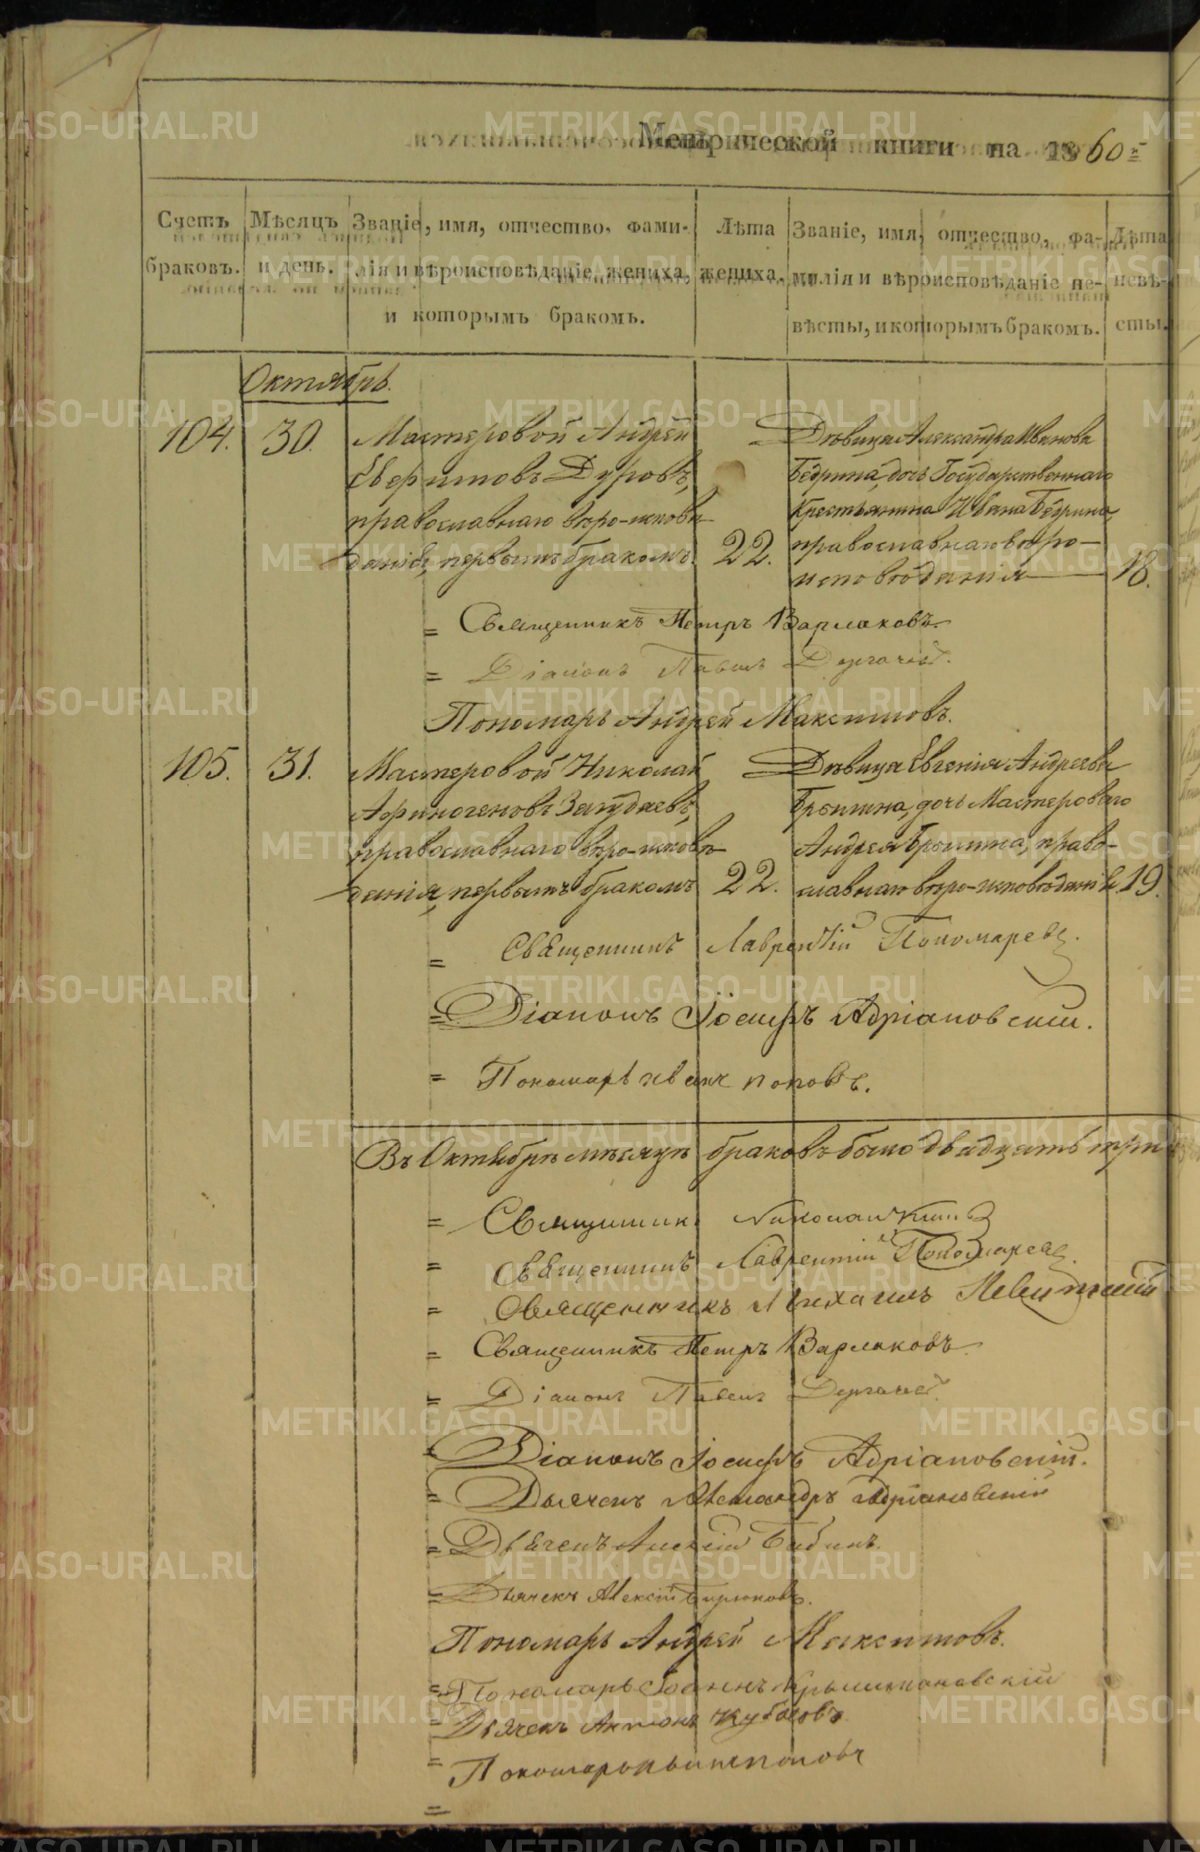 Метрической книги на 1860 г.
Счетъ браковъ.
Мѣсяцъ и день.
Званіе, имя, отчество, фами-
лія и вѣроисповѣданіе жениха,
и которымъ бракомъ.
Лѣта
жениха.
Званіе, имя, отчество, фа-
милія и вѣроисповѣданіе не-
вѣсты, и которымъ бракомъ.
Лѣта
невѣ-
сты.
Октябрь.
104. 30.
Мастеровой Андрей
Дуровъ,
православнаго вѣро-исповѣ-
данія, первымъ бракомъ. 22.
Дѣвица Александра Иванова
Бедрина, дочь Государственнаго
Крестьянина Ивана Бедрина,
православнаго вѣро-
исповѣданія 18.
= Священникъ Петръ Варлаковъ
= Діаконъ Павелъ
Пономарь Андрей Максимовъ.
105. 31.
Мастеровой Николай
Афиногеновъ
православнаго вѣро-исповѣ-
данія, первымъ бракомъ 22.
Дѣвица Евгенія Андреева
дочь Мастероваго
Андрея право-
славнаго вѣро-исповѣданія 19.
= Священникъ Лаврентій Пономаревъ.
= Діаконъ Іосифъ Адріановскій.
= Пономарь Иванъ Поповъ.
Въ Октябрѣ мѣсяцѣ браковъ было двадцать три
= Священникъ
= Священникъ Лаврентій Пономаревъ
= Священникъ Михаилъ Левитскій
= Священникъ Петръ Варлаковъ
= Діаконъ Павелъ
= Діаконъ Іосифъ Адріановскій.
= Дьячекъ Александръ Адріановскій
= Дьячекъ Алексій Бабинъ.
= Дьячекъ Алексій Бирюковъ.
Пономарь Андрей Максимовъ.
= Пономарь Іоаннъ
= Дьячекъ Антонъ
= Пономарь Поповъ
=
METRIKI.GASO-URAL.RU